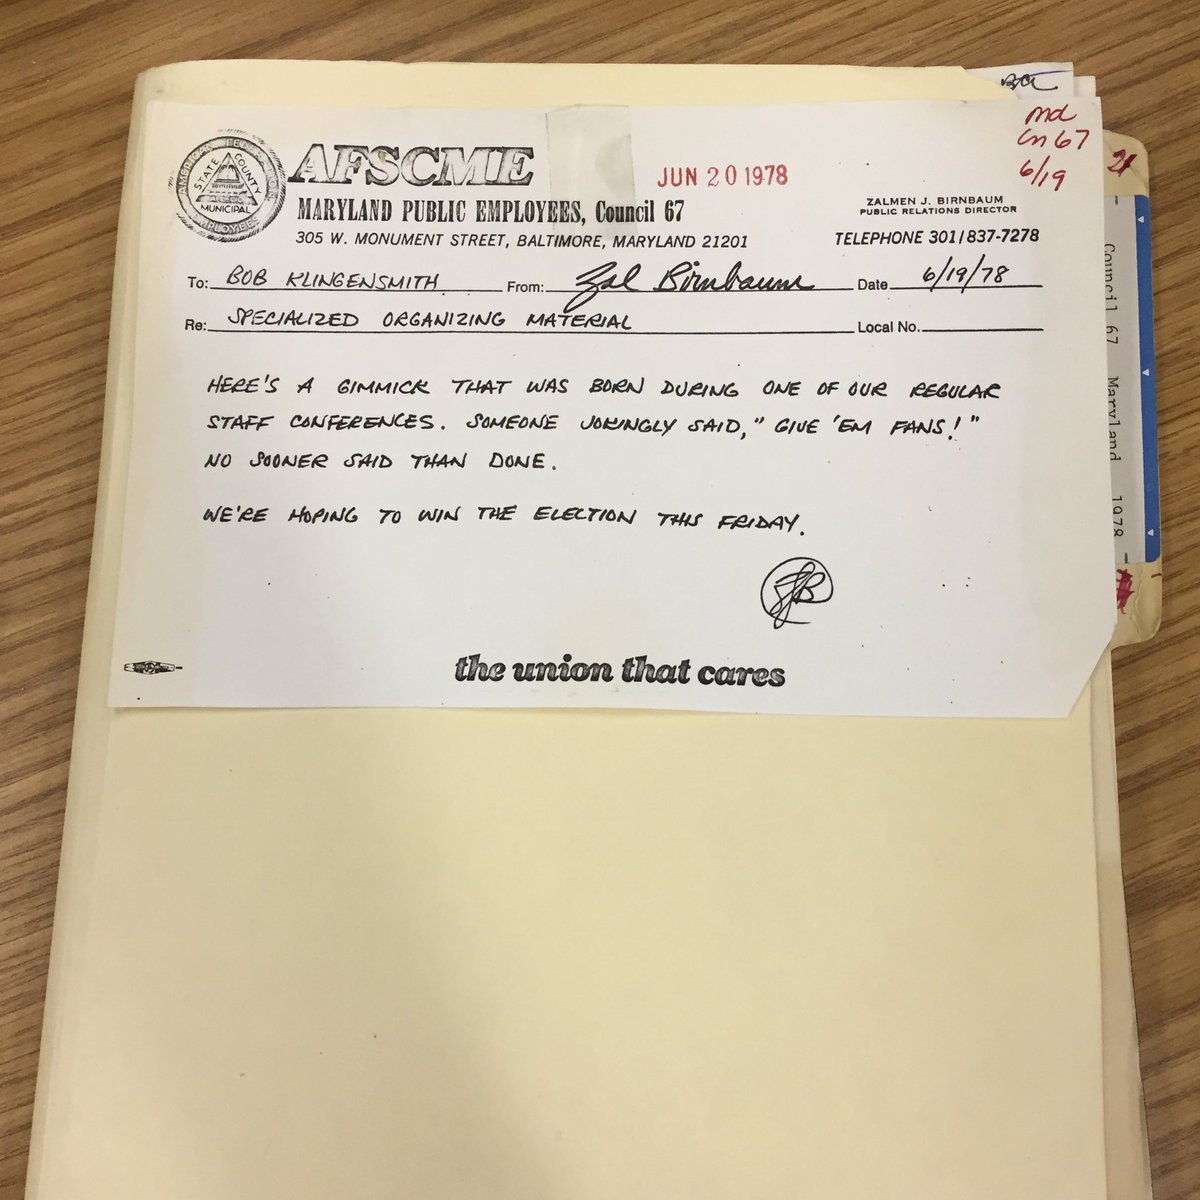 md
Cn 67
6/19
AFSCME
JUN 20 1978
AMERICAN FEDERATION
STATE COUNTY
MUNICIPAL
EMPLOYEES
MARYLAND PUBLIC EMPLOYEES, Council 67
305 W. MONUMENT STREET, BALTIMORE, MARYLAND 21201
ZALMEN J. BIRNBAUM
PUBLIC RELATIONS DIRECTOR
TELEPHONE 301/837-7278
To: BOB KLINGENSMITH From: Zal Birnbaum Date 6/19/78
Re: SPECIALIZED ORGANIZING MATERIAL Local No.
HERE'S A GIMMICK THAT WAS BORN DURING ONE OF OUR REGULAR
STAFF CONFERENCES. SOMEONE JOKINGLY SAID, "GIVE 'EM FANS!"
NO SOONER SAID THAN DONE.
WE'RE HOPING TO WIN THE ELECTION THIS FRIDAY.
ZJB
the union that cares
Council 67 Maryland 1978